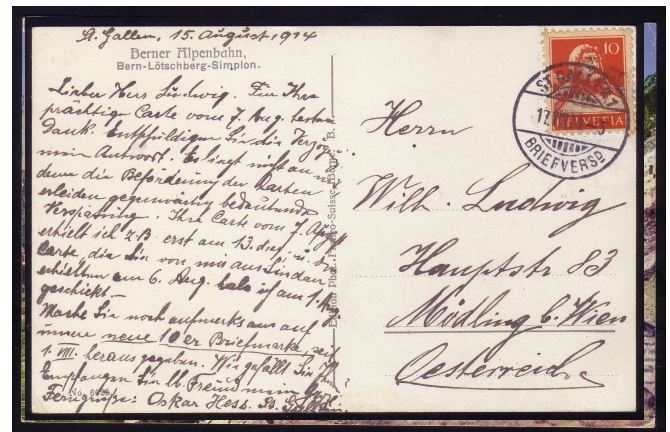 St. Gallen, 15. August, 1914
Berner Alpenbahn,
Bern-Lötschberg-Simplon.
Lieber Herr Ludwig. Für Ihre
prächtige Carte vom 7. Aug. besten
Dank. Entschuldigen Sie die Verzöge
mein Antwort. Es liegt nicht an mir
denn die Beförderung der Karten
erleiden gegenwärtig bedeutende
Verspätung. Ihre Carte vom 7. Aug.
erhielt ich z.B. erst am 13. dies,
Carte, die Sie von mir aus Lindau
erhielten am 6. Aug. habe ich am 1.
geschickt –
Mache Sie noch aufmerksam auf
unsere neue 10er Briefmarke, seit
1. VIII. herausgegeben. Wie gefällt Sie Ihnen
Empfangen Sie lb. Freund meine
Ferngrüße: Oskar Hess. St. Gallen.
No. 
10
HELVETIA
ST. GALLEN 1
17.
BRIEFVERSD
Herrn
Wilh. Ludwig
Hauptstr. 83
Mödling b. Wien
Oesterreich